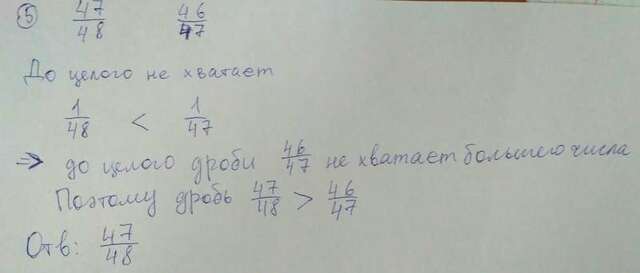 5) 47/48 46/47
До целого не хватает
1/48 < 1/47
=> до целого дроби 46/47 не хватает большего числа
Поэтому дробь 47/48 > 46/47
Отв: 47/48